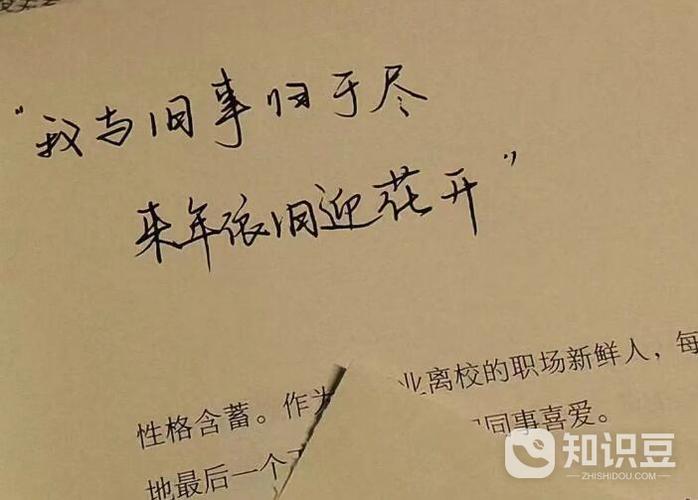 “我与旧事归于尽
来年依旧迎花开”
业离校的职场新鲜人，每
性格含蓄。作为
同事喜爱。
地最后一个
知识豆
ZHISHIDOU.COM